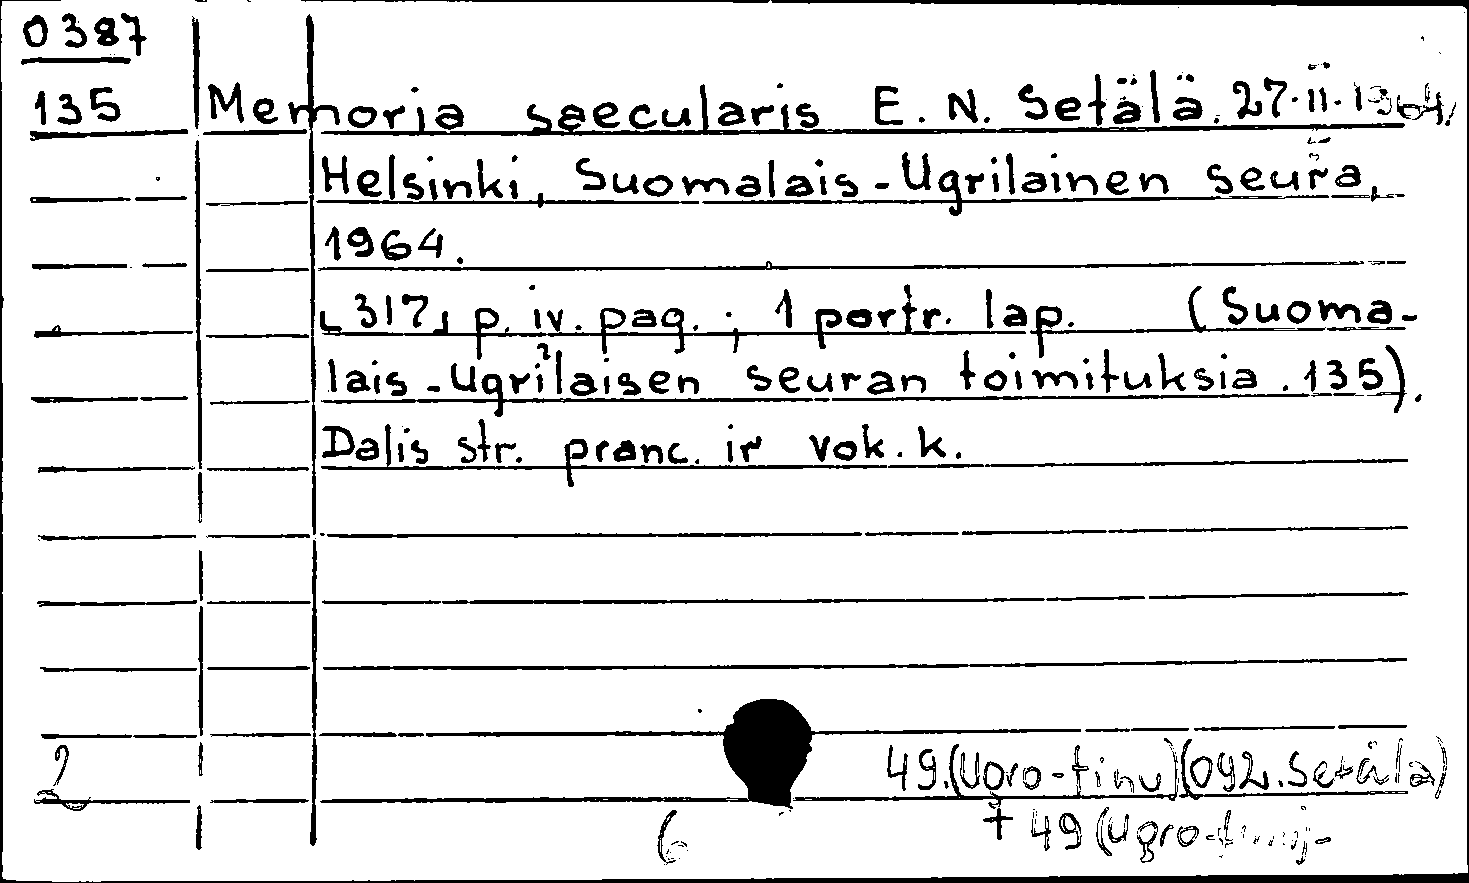 0387
135 Memoria saecularis E. N. Setälä. 27.II.1964,
Helsinki, Suomalais-Ugrilainen seura,
1964.
[317] p. iv. pag. ; 1 portr. lap. (Suoma-
lais-Ugrilaisen seuran toimituksia. 135).
Dalis str. pranc. ir vok. k.
2 49.(Ugro-finu)(092.Setäla)
6 + 49(Ugro-